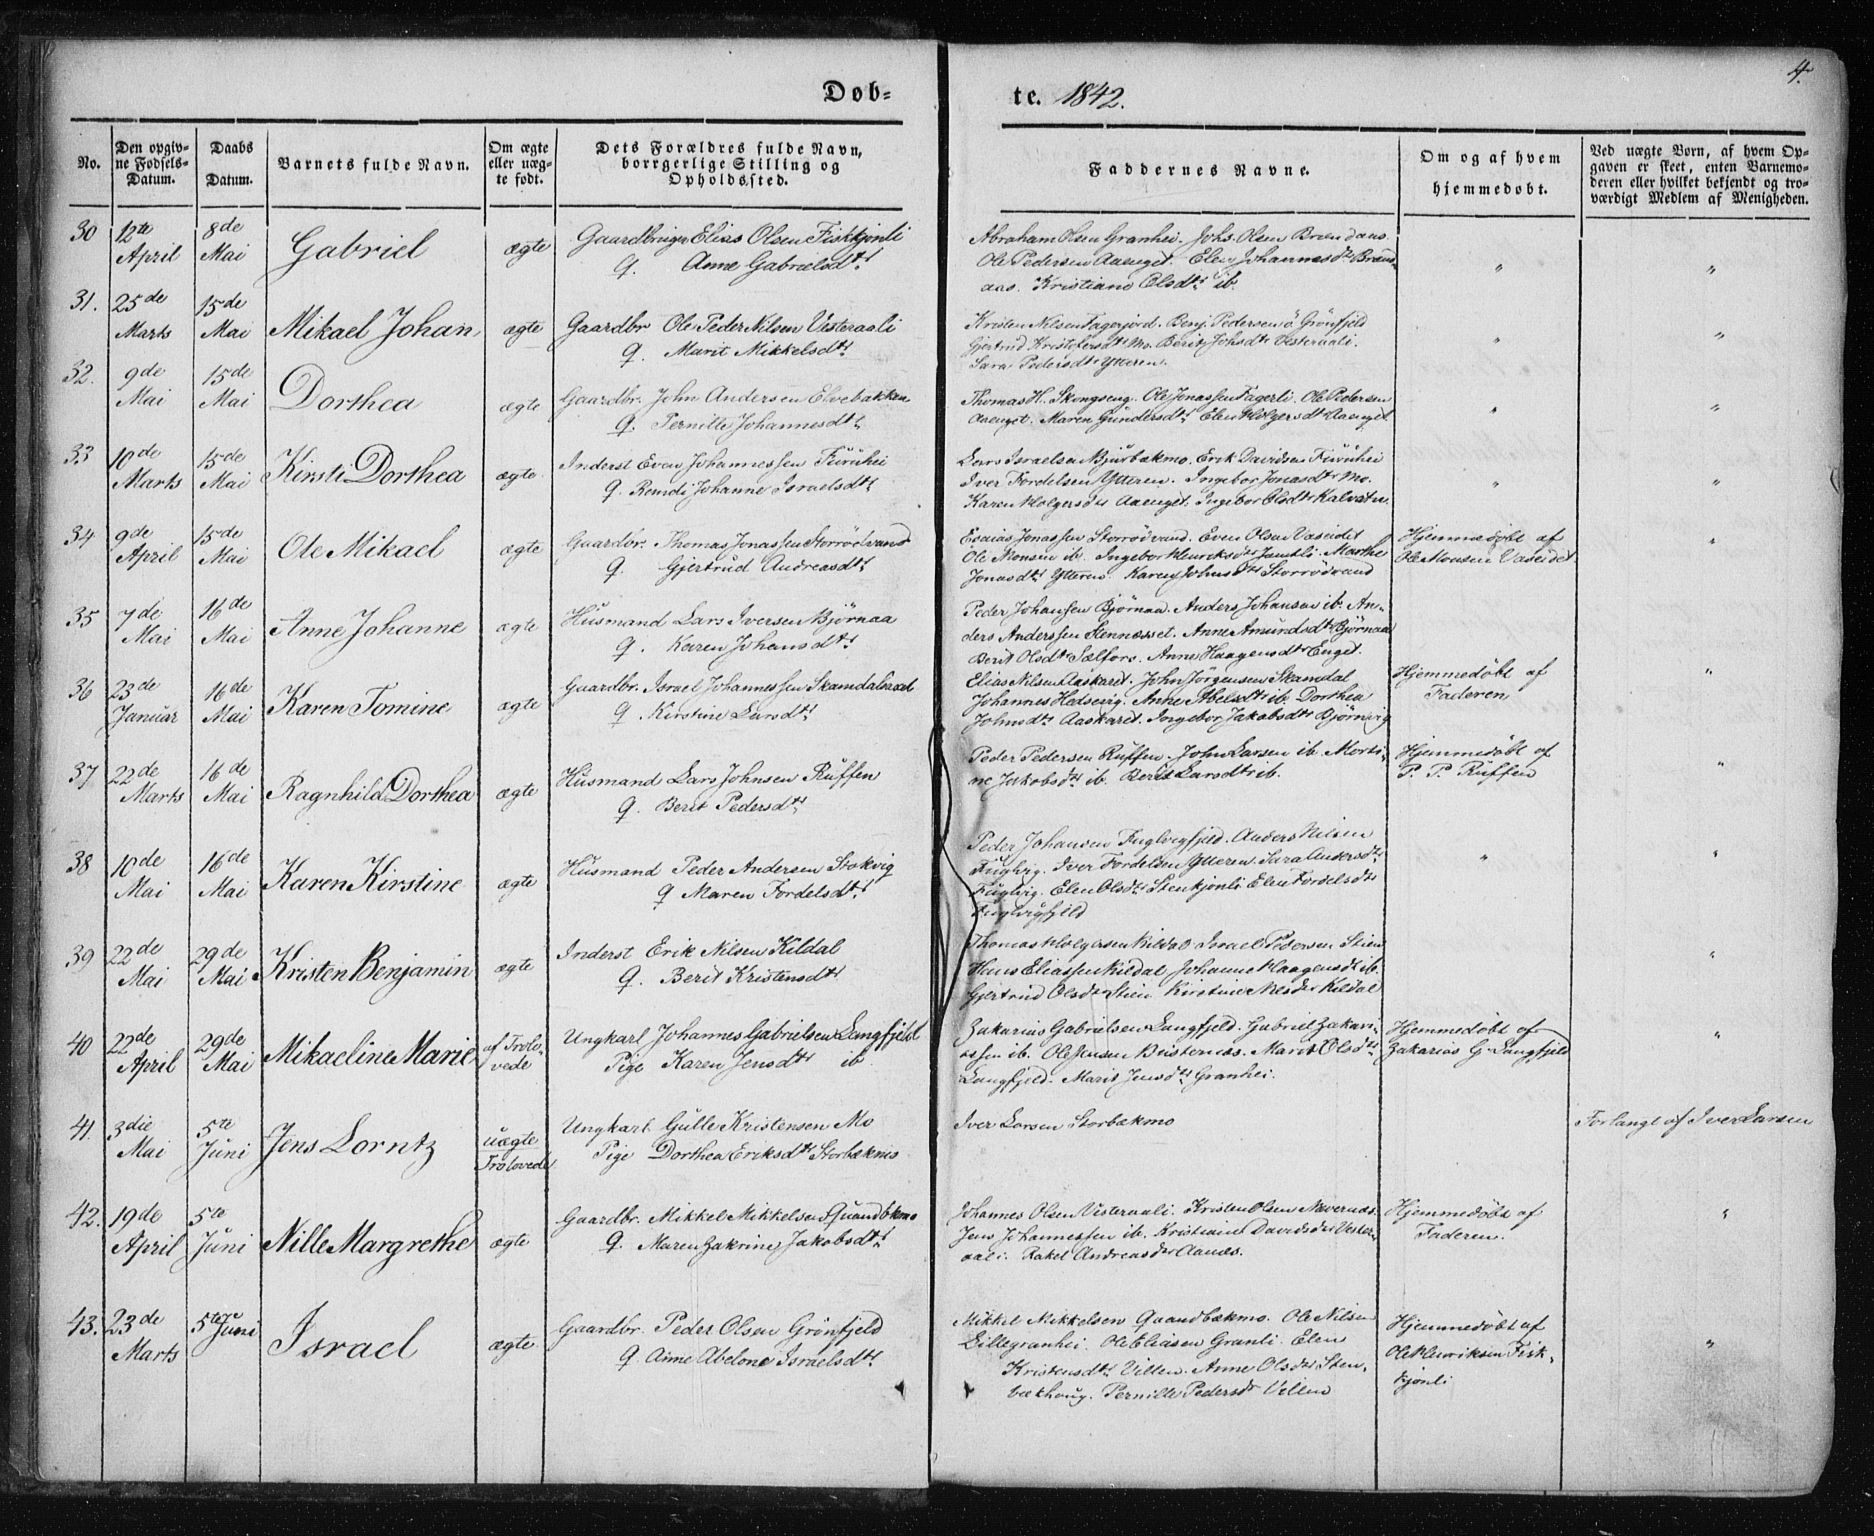 4.
Døb-
te. 1842.
No.
Den opgiv-
ne Fødsels-
Datum.
Daabs
Datum.
Barnets fulde Navn.
Om ægte
eller uæg-
te født.
Dets Forældres fulde Navn,
borrgerlige Stilling og
Opholdssted.
Faddernes Navne.
Om og af hvem
hjemmedøbt.
Ved uægte Born, af hvem Op-
gaven er skeet, enten Barnemo-
deren eller hvilket bekjendt og tro-
værdigt Medlem af Menigheden.
30 12te 8de Gaardbruger Elias Olsen Fiskkjønli
April Mai Gabriel ægte q. Anne Gabrielsdtr
Abraham Olsen Granhei. Johs. Olsen Brændaas.
Ole Pedersen Aaenget. Elen Johannesdtr Bræn-
aas. Kristiane Olsdtr ib.
31. 25de 15de
Marts Mai Mikael Johan ægte Gaardbr Ole Peder Nilsen Vesteraali
q. Marit Mikkelsdtr
Kristen Nilsen Fagerjord. Benj. Pedersen ö Grönfjeld
Gjertrud Kristofersdtr Mo. Berit Johsdtr Vesteraali.
Sara Pedersdtr Ytteren.
32. 9de 15de
Mai Mai Dorthea ægte Gaardbr. John Andersen Elvebakken
q. Pernille Johannesdtr
Thomas H. Skongseng. Ole Jonassen Fagerli. Ole Pedersen
Aaenget. Maren Gundersdtr Elen Holgersdtr Aaenget
33 10de 15de
Marts Mai Kirsti Dorthea ægte Inderst Even Johannessen Furuhei
q. Remdi Johanne Israelsdtr
Lars Israelsen Bjurbækmo. Erik Davidsen Furuhei
Iver Fordelsen Ytteren. Ingebor Jonasdtr Mo.
Karen Holgersdtr Aaenget. Ingebor Olsdtr Kalvatn.
34 9de 15de
April Mai Ole Mikael ægte Gaardbr. Thomas Jonassen Storrödvand
q. Gjertrud Andreasdtr
Esaias Jonassen Storrödvand. Even Olsen Vaseidet
Ole Monsen ib. Ingebor Henriksdtr Jamtli. Marthe
Jonasdtr Ytteren. Karen Johnsdtr Storrödvand
Hjemmedøbt af
Ole Monsen Vaseidet
35 7de 16de
Mai Mai Anne Johanne ægte Husmand Lars Iversen Bjørnaa
q. Karen Johansdtr
Peder Johansen Bjørnaa. Anders Johansen ib. An-
ders Anderssen Hennesset. Anne Amundsdtr Bjørnaa
Berit Olsdtr Sælfors. Anne Haagensdtr Enget.
36 23de 16de
Januar Mai Karen Tomine ægte Gaardbr. Israel Johannessen Skamdalsæt
q. Kirstine Larsdtr
Elias Nilsen Aaskaret. John Jörgensen Skamdal
Johannes Hedsvig. Anne Abelsdtr ib. Dorthea
Johnsdtr Aaskaret. Ingebor Jakobsdtr Bjørnvig
Hjemmedøbt af
Faderen
37 22de 16de
Marts Mai Ragnhild Dorthea ægte Husmand Lars Johnsen Ruffen
q. Berit Pedersdtr
Peder Pedersen Ruffen. John Larsen ib. Morti-
ne Jakobsdtr ib. Berit Larsdtr ib.
Hjemmedøbt af
P. P. Ruffen
38 10de 16de
Mai Mai Karen Kirstine ægte Husmand Peder Andersen Stokvig
q Maren Fordelsdtr
Peder Johansen Fuglvigfjeld. Anders Nilsen
Fuglvig. Iver Fordelsen Ytteren. Sara Andersdtr
Fuglvig. Elen Olsdtr Stenkjønli Elen Fordelsdtr
Fuglvigfjeld
39 22de 29de
Mai Mai Kristen Benjamin ægte Inderst Erik Nilsen Kildal
q. Berit Kristensdtr
Thomas Holgersen Kildal Israel Pedersen Stien
Hans Eliassen Kildal Johanne Haagensdtr ib.
Gjertrud Olsdtr Stien Kirstine Nilsdtr Kildal
40 22de 29de
April Mai Mikaeline Marie af Trolo-
vede
Ungkarl Johannes Gabrielsen Langfjeld
Pige Karen Jensdtr ib
Zakarias Gabrielsen Langfjeld. Gabriel Zakari-
assen ib. Ole Jensen Bustenæs. Marit Olsdtr
Langfjeld. Marit Jensdtr Granhei.
Hjemmedøbt af
Zakarias G. Langfjeld
41. 3die 5te
Mai Juni Jens Lorntz uægte
Trolovede
Ungkarl Gulle Kristensen Mo
Pige Dorthea Eriksdtr Storbæknis
Iver Larsen Storbækmo
Forlangt af Iver Larsen
42. 19de 5te
April Juni Nille Margrethe ægte Gaardbr. Mikkel Mikkelsen Quandbkmo
q. Maren Zakrine Jakobsdtr
Johannes Olsen Vesteraali. Kristen Olsen Nævernæs.
Jens Johannessen ib. Kristiane Davidsdtr Vester-
aali. Rakel Andreasdtr Aanæs.
Hjemmedøbt af
Faderen.
43. 23de 5te Juni
Marts Israel ægte Gaardbr. Peder Olsen Grönfjeld
q Anne Abelone Israelsdtr
Mikkel Mikkelsen Quandbækmo. Ole Nilsen
Lillegranhei. Ole Eliasen Granli. Elen
Kristensdtr Villen. Anne Olsdtr Sten-
bækhaug. Pernille Pedersdtr Villen
Hjemmedøbt af
Ole Henriksen Fisk-
kjønli